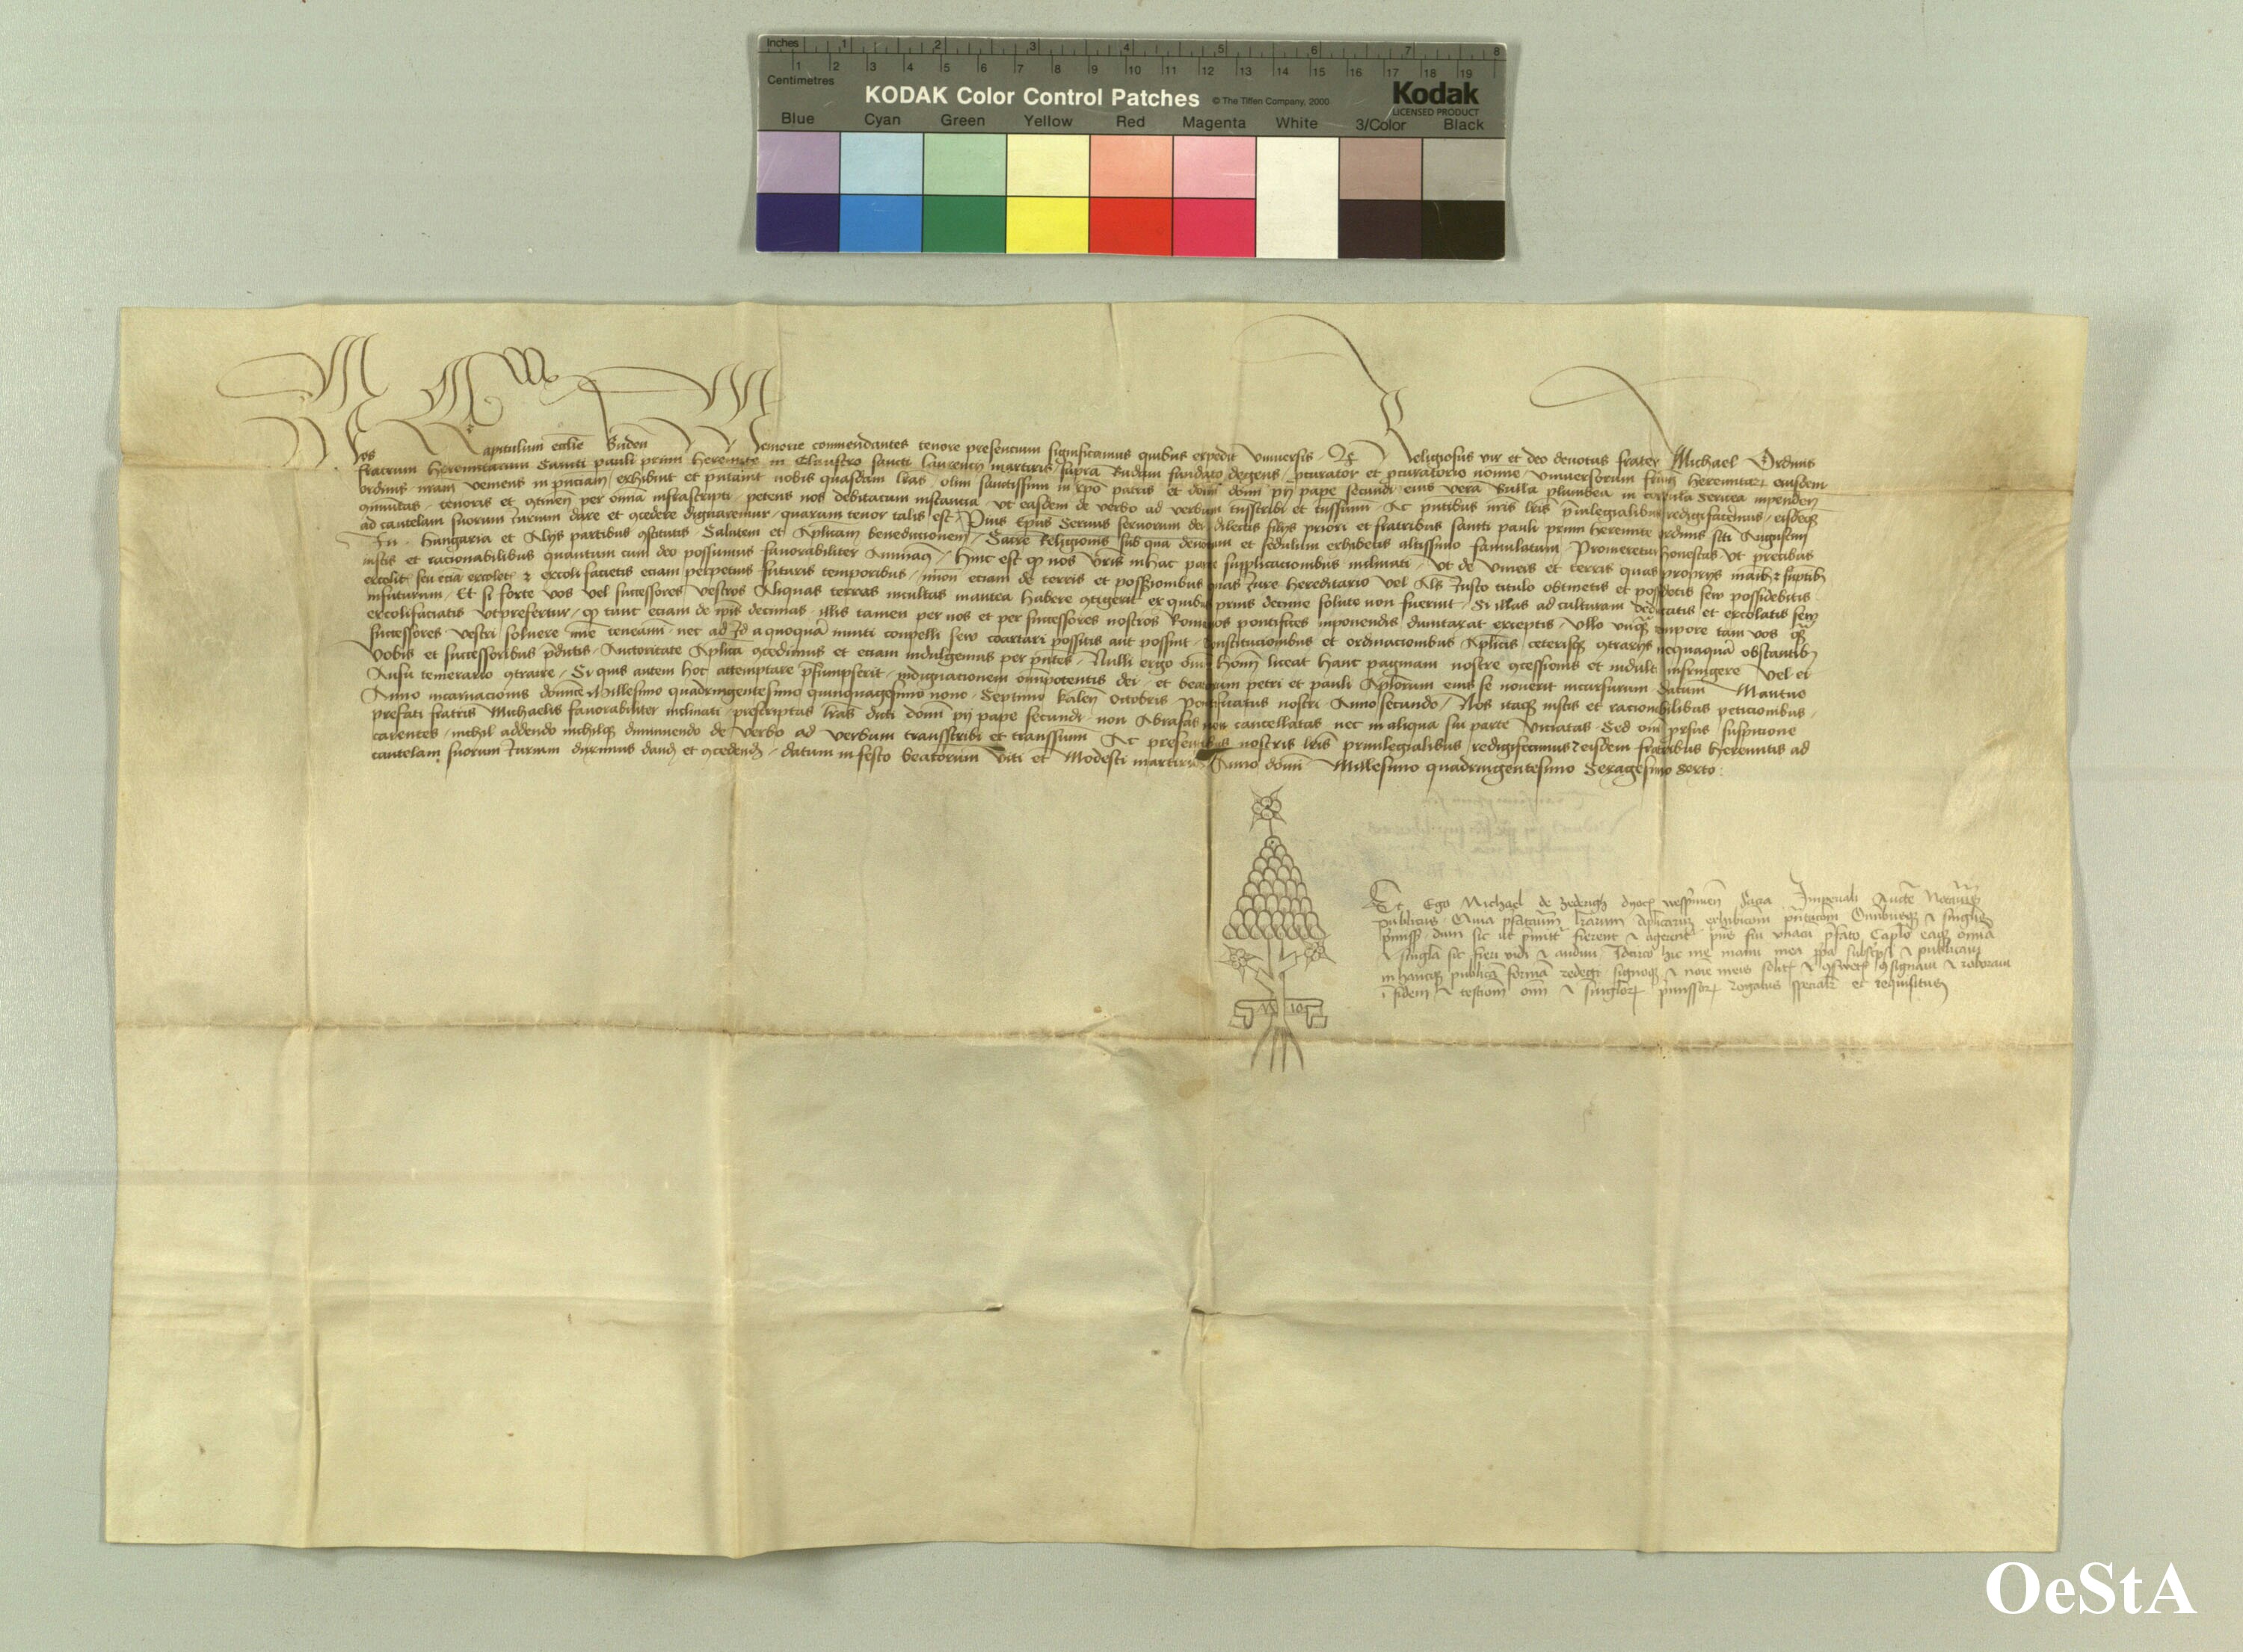 Inches 1 2 3 4 5 6 7 8
1 2 3 4 5 6 7 8 9 10 11 12 13 14 15 16 17 18 19
Centimetres
KODAK Color Control Patches © The Tiffen Company, 2000 Kodak
LICENSED PRODUCT
Blue Cyan Green Yellow Red Magenta White 3/Color Black
Nos Capitulum ecclie Buden Memorie commendantes tenore presencium significamus quibus expedit vniuersis Religiosus vir et deo deuotus frater Michael Ordinis
fratrum Heremitarum Sancti pauli primi Heremite in Claustro sancti laurencij martiris supra Budam fundato degens pcurator et pcuratorio nomine vniuersorum frum heremitar eiusdem
ordinis nram veniens in pnciam exhibuit et pntauit nobis quasdam lras olim sanctissimi in xpo patris et domi domi pij pape secundi eius vera Bulla plumbea in sericea inpenden
tenoris et per omia infrascripti petens nos debitacum instancia vt easdem de verbo ad verbum tnsscribi et tnssumi Ac pntibus nris lris priuilegialibus redigifacemus eisdeq
ad cautelam suorum iurium dare et gcedere dignaremur quarum tenor talis est Pius Eps Seruus seruorum dei dilectis filijs priori et fratribus sancti pauli primi heremite ordinis sti Augustini
In Hungaria et Alijs partibus gstitutis Salutem et Aplicam benedictionem Sacre Religionis sub qua deuotum et sedulum exhibetis altissimo famulatum Promeretur honestas vt precibus
iustis et racionabilibus quantum cum deo possumus fauorabiliter Annuam Hinc est q nos vris inhac parte supplicacionibus inclinati vt de vineis et terris quas proprijs manib sumptib
excolit seu ecia excolet excoli facietis eciam perpetuis futuris temporibus eciam de terris et possionibus quas iure hereditario vel Als iusto titulo obtinetis et possidetis sew possidebitis
infuturum Et si forte vos vel successores vestros Aliquas terras incultas inantea habere gtigerit ex quibus prius decime solute non fuerint Si illas ad culturam deducatis et excolatis sew
excolifaciatis vtprefertur q tunc eciam de ipis decimas illis tamen per nos et per successores nostros Romanos pontifices inponendis duntaxat exceptis vllo vnq tempore tam vos q
successores vestri soluere teneami nec ad id a quoqua inuiti conpelli sew coartari possitis aut possint Constitucionibus et ordinacionibus Aplicis ceterisq gtrarijs nequaqua obstantib
vobis et successoribus pdictis Auctoritate Aplica gcedimus et eciam indulgemus per pntes Nulli ergo omi Homi liceat hanc paginam nostre gcessionis et indulti infringere vel ei
Ausu temerario gtraire Si quis autem hoc attemptare psumpserit indignacionem omipotentis dei et beatorum petri et pauli Aplorum eius se nouerit incursurum datum Mantue
Anno incarnacionis dominice Millesimo quadringentesimo quinquagesimo nono Septimo kalen Octobris Pontificatus nostri Anno secundo Nos itaq iustis et racionabilibus peticionibus
prefati fratris Michaelis fauorabiliter inclinati prescriptas lras dicti domi pij pape secundi non Abrasas non cancellatas nec in aliqua sui parte viciatas Sed omi prsus suspicione
carentes nichil addendo nichilq diminuendo de verbo ad verbum transscribi et transsumi Ac presentibus nostris lris priuilegialibus redigifecimus eisdem fratribus heremitis ad
cautelam suorum iurium duximus dand et gcedend datum in festo beatorum Viti et Modesti martirum Anno domi Millesimo quadringentesimo Sexagesimo Sexto
Et Ego Michael de dyoc wesprimien Sacra Imperiali Aucte Notarius
publicus Quia pfatarum lrarum Aplicarum exhibicioni pntacioni Omnibusq singulis
pmissis dum sic ut pmittit fierent agerent pns fui vnacu pfato Caplo eaq omia
singla sic fieri vidi audiui Idcirco hic me manu mea ppa subscpsi publicaui
in hancq publica forma redegi signoq noie meis solit gsignaui roboraui
i fidem testiom oim singlor pmissor rogatus specialr et requisitus
OeStA